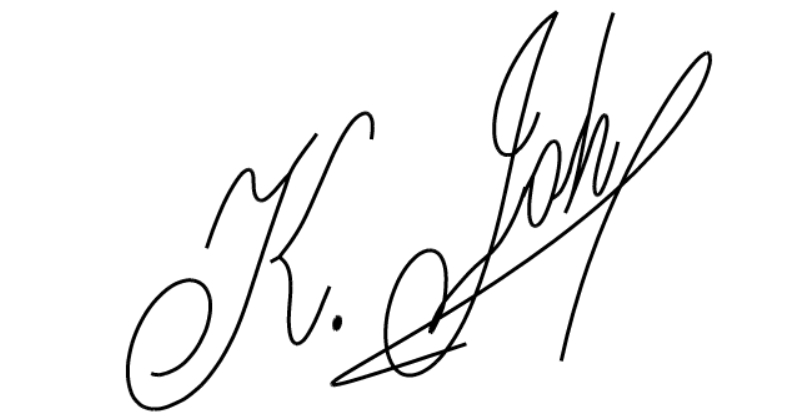 K. Joh